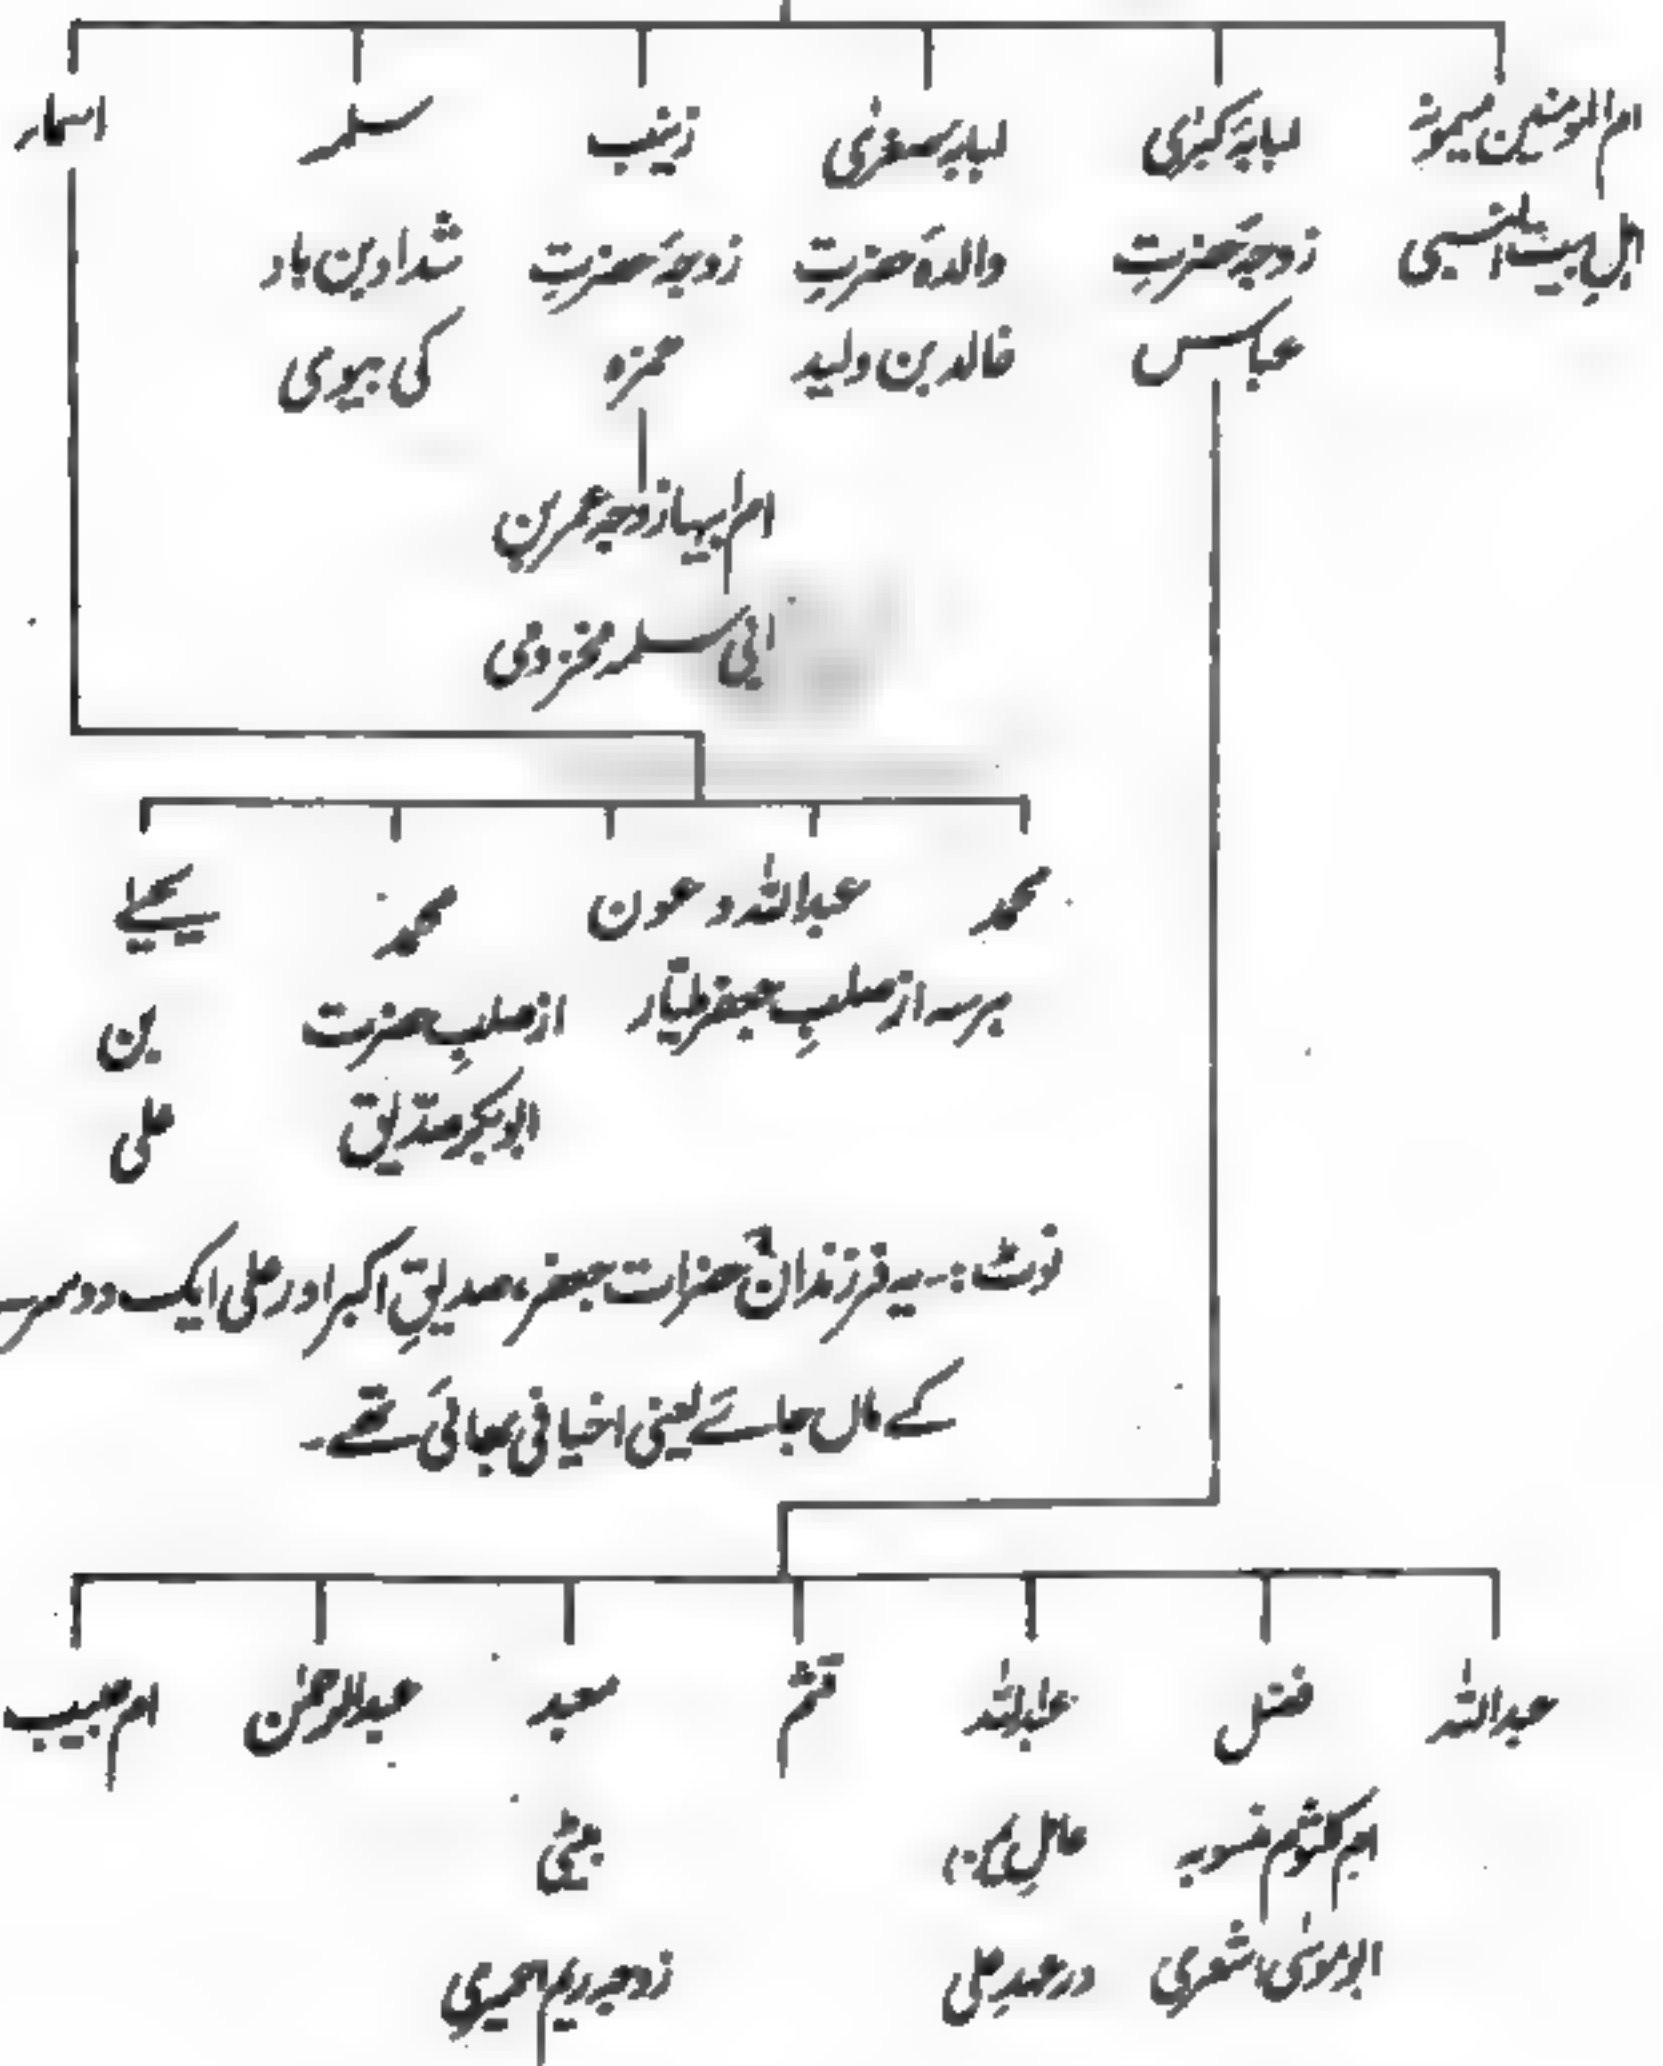 ام المومنین میمونہ
اہلِ بیت النبی
لبابہ کبریٰ
زوجۂ حضرتِ
عباس
لبابہ صغریٰ
والدہ حضرتِ
خالد بن ولید
زینب
زوجۂ حضرتِ
حمزہ
ام ابیہا زوجہ عمر بن
ابی سلمہ مخزومی
سلمہ
شداد بن ہاد
کی بیوی
اسماء
محمد
عبداللہ و عون
ہر سہ از صلبِ جعفر طیار
محمد
از صلبِ حضرت
ابوبکر صدیق
یحییٰ
بن
علی
نوٹ:- یہ فرزندانِ حضرات جعفر، صدیقِ اکبر اور علی ایک دوسرے
کے ماں جائے یعنی اخیافی بھائی تھے۔
عبداللہ
فضل
ام کلثوم منسوبہ
ابوموسیٰ اشعری
عبداللہ
عاملِ یمن
در عہدِ علی
قثم
معبد
بیٹی
زوجہ ریم حمیری
عبدالرحمٰن
ام حبیب